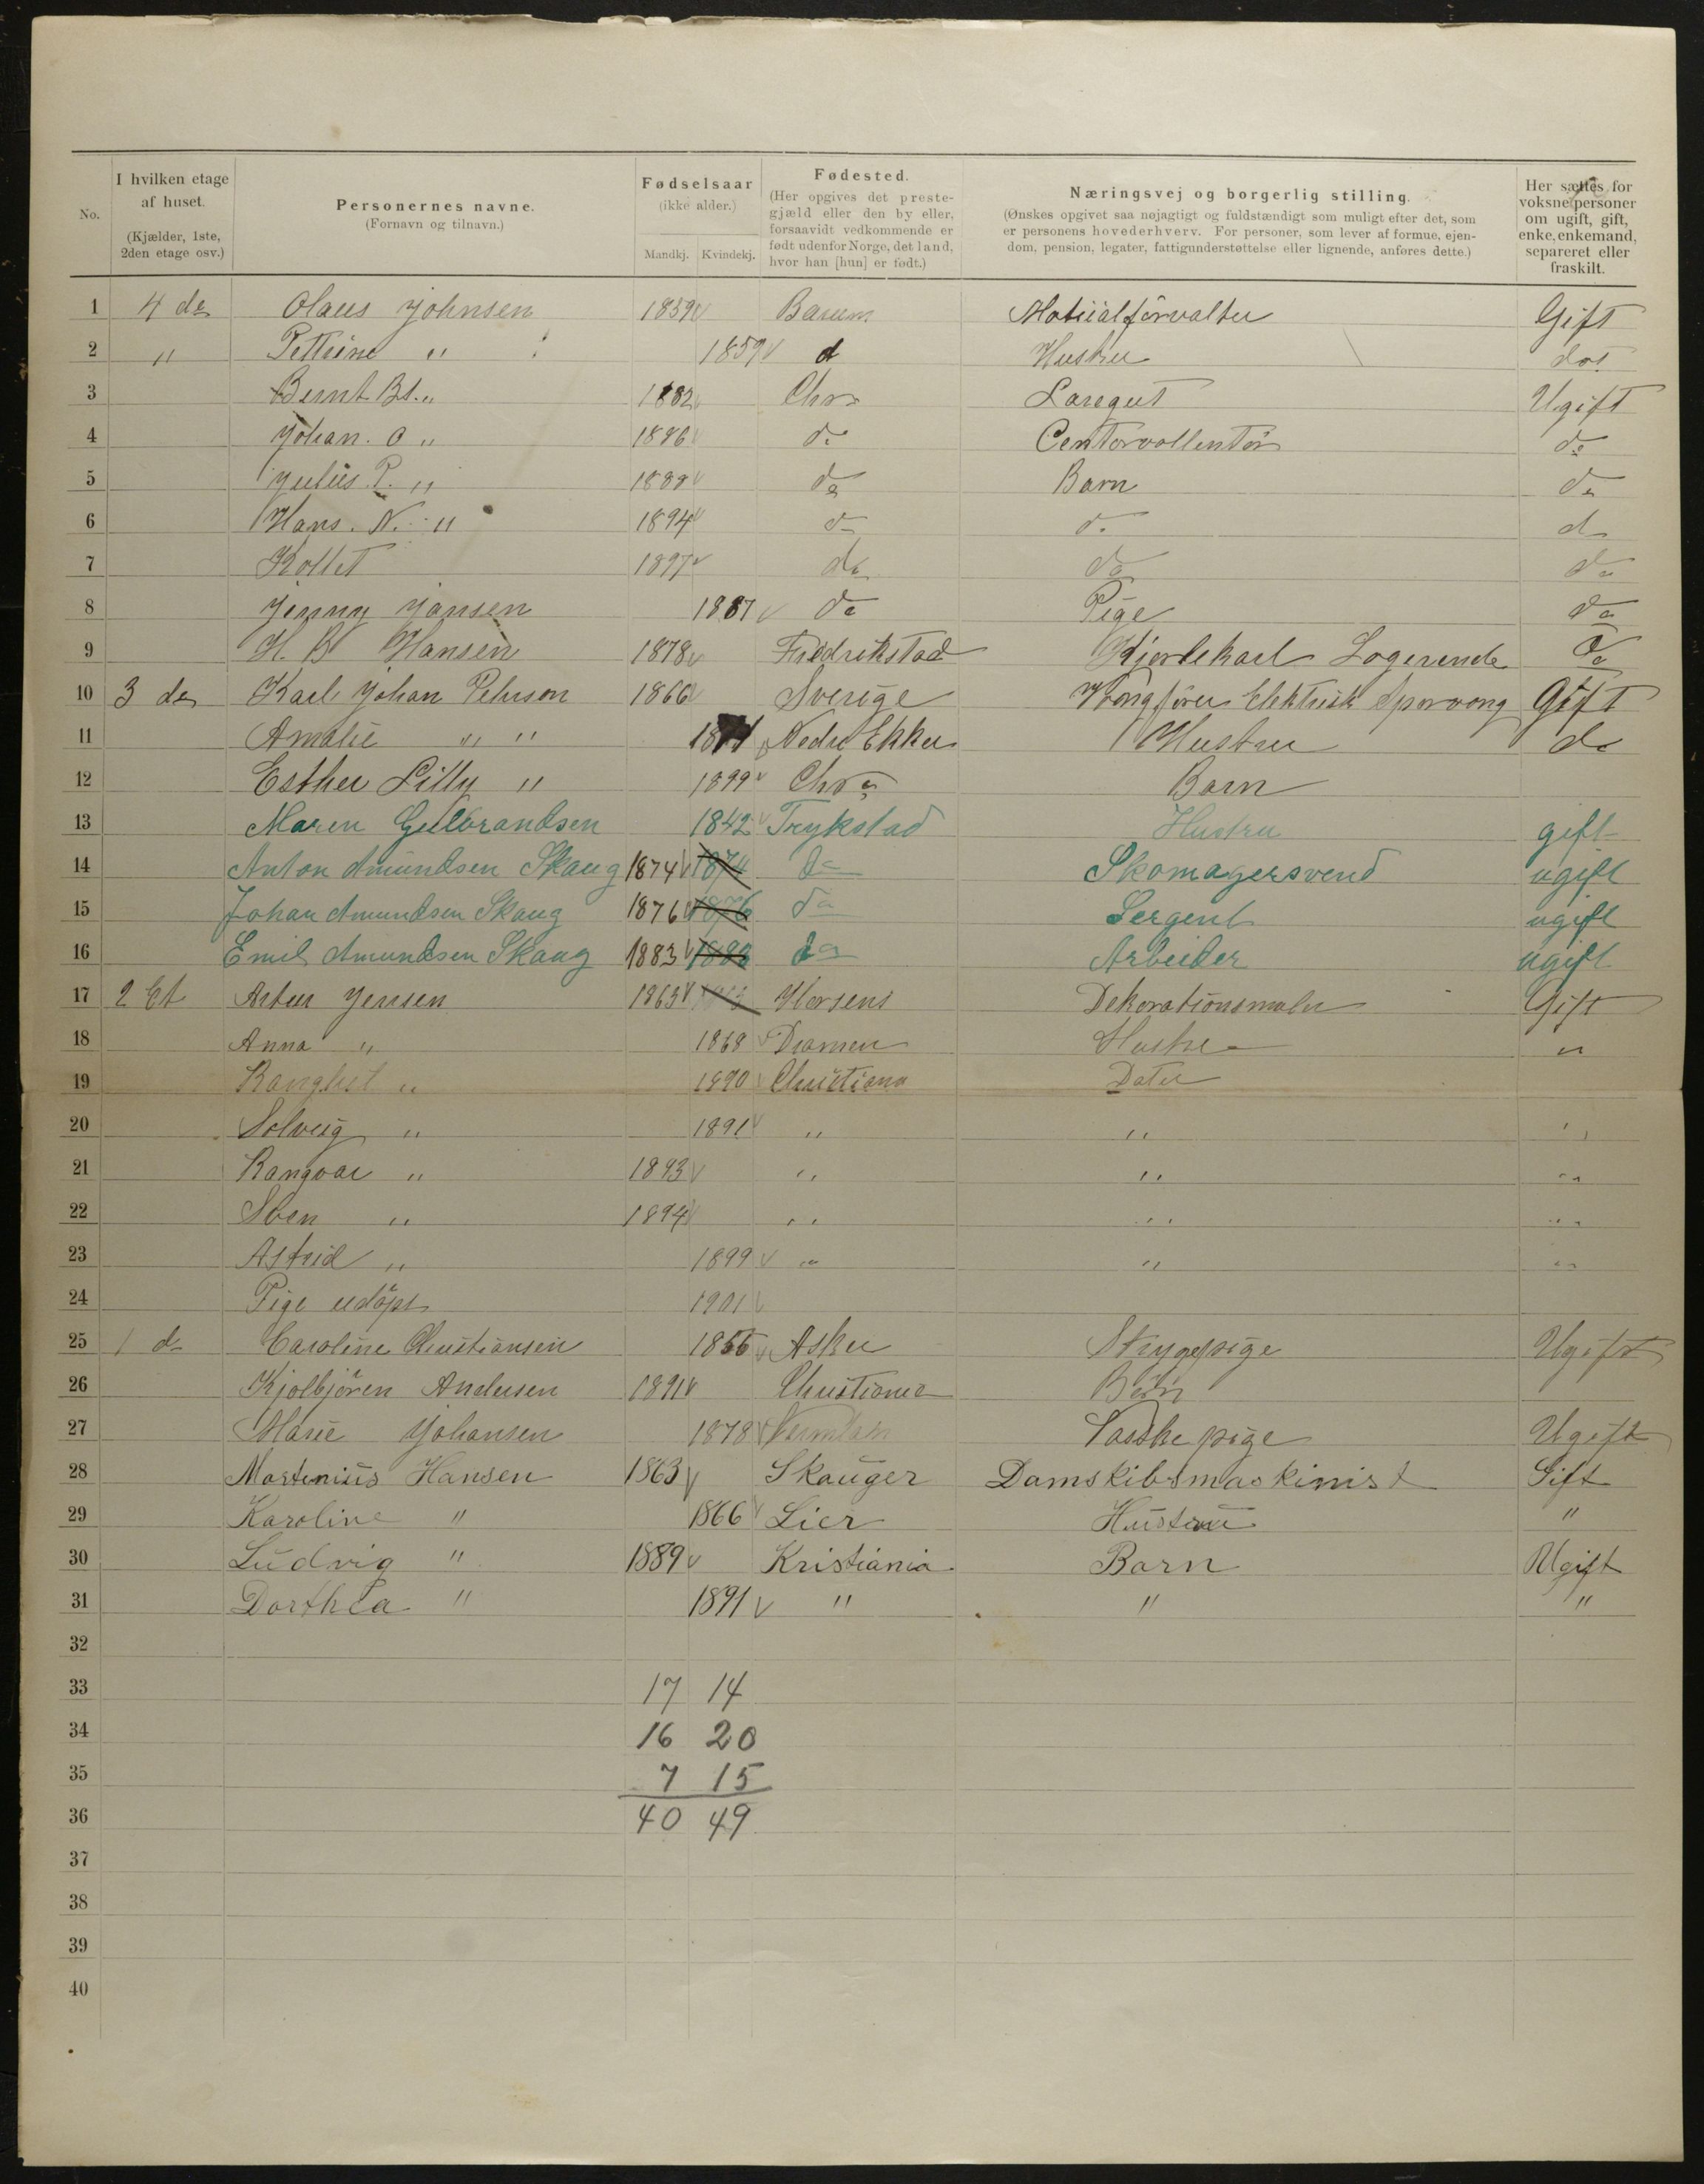 No.
I hvilken etage af huset. (Kjælder, 1ste, 2den etage osv.)
Personernes navne. (Fornavn og tilnavn.)
Fødselsaar (ikke alder.) Mandkj. Kvindekj.
Fødested. (Her opgives det prestegjæld eller den by eller, forsaavidt vedkommende er født udenfor Norge, det land, hvor han [hun] er født.)
Næringsvej og borgerlig stilling. (Ønskes opgivet saa nøjagtigt og fuldstændigt som muligt efter det, som er personens hovederhverv. For personer, som lever af formue, ejendom, pension, legater, fattigunderstøttelse eller lignende, anføres dette.)
Her sættes for voksne personer om ugift, gift, enke, enkemand, separeret eller fraskilt.
1 4 de Olaus Johnsen 1859 Barum Gift
2 " Petterine " 1859 d Hustru do
3 Bernt " 1882 Chra Laregut Ugift
4 Johan. O " 1886 do do
5 Julius P. " 1889 do Barn do
6 Hans. N. " 1894 do do do
7 Kollet 1897 do do do
8 Jenny Jansen 1887 do Pige do
9 H. B Hansen 1878 Fredrikstad Kjørekarl Logerende do
10 3 de Karl Johan Pehrson 1866 Sverige Vongfører Elektrisk Sporvong Gift
11 Amalie " " Nedre Ekker Hustru do
12 Esther Lilly " 1899 Chra Barn
13 Maren Gulbrandsen 1842 Trykstad Hustru gift
14 Anton Amundsen Skaug 1874 1874 do Skomagersvend ugift
15 Johan Amundsen Skaug 1876 1876 do Sergent ugift
16 Emil Amundsen Skaug 1883 1883 do Arbeider ugift
17 2 Et Artur Jensen 1863 Horsens Dekorationsmaler Gift
18 Anna " 1868 Dramen Hustru "
19 Ranghil " 1890 Christiana Dater
20 Solveig " 1891 " " "
21 Rangvar " 1893 " " "
22 Sven " 1894 " " "
23 Astrid " 1899 " " "
24 Pige udöpt 1901
25 1 d Caroline Christiansen 1866 Asker Strygepige Ugift
26 Kjolbjören Andersen 1891 Christiania
27 Marie Johansen 1878 Vaskepige Ugift
28 Martenius Hansen 1863 Skauger Damskibsmaskinist Gift
29 Karoline " 1866 Lier Hustru "
30 Ludvig " 1889 Kristiania Barn Ugift
31 Dorthea " 1891 " " "
32
33 17 14
34 16 20
35 7 15
36 40 49
37
38
39
40